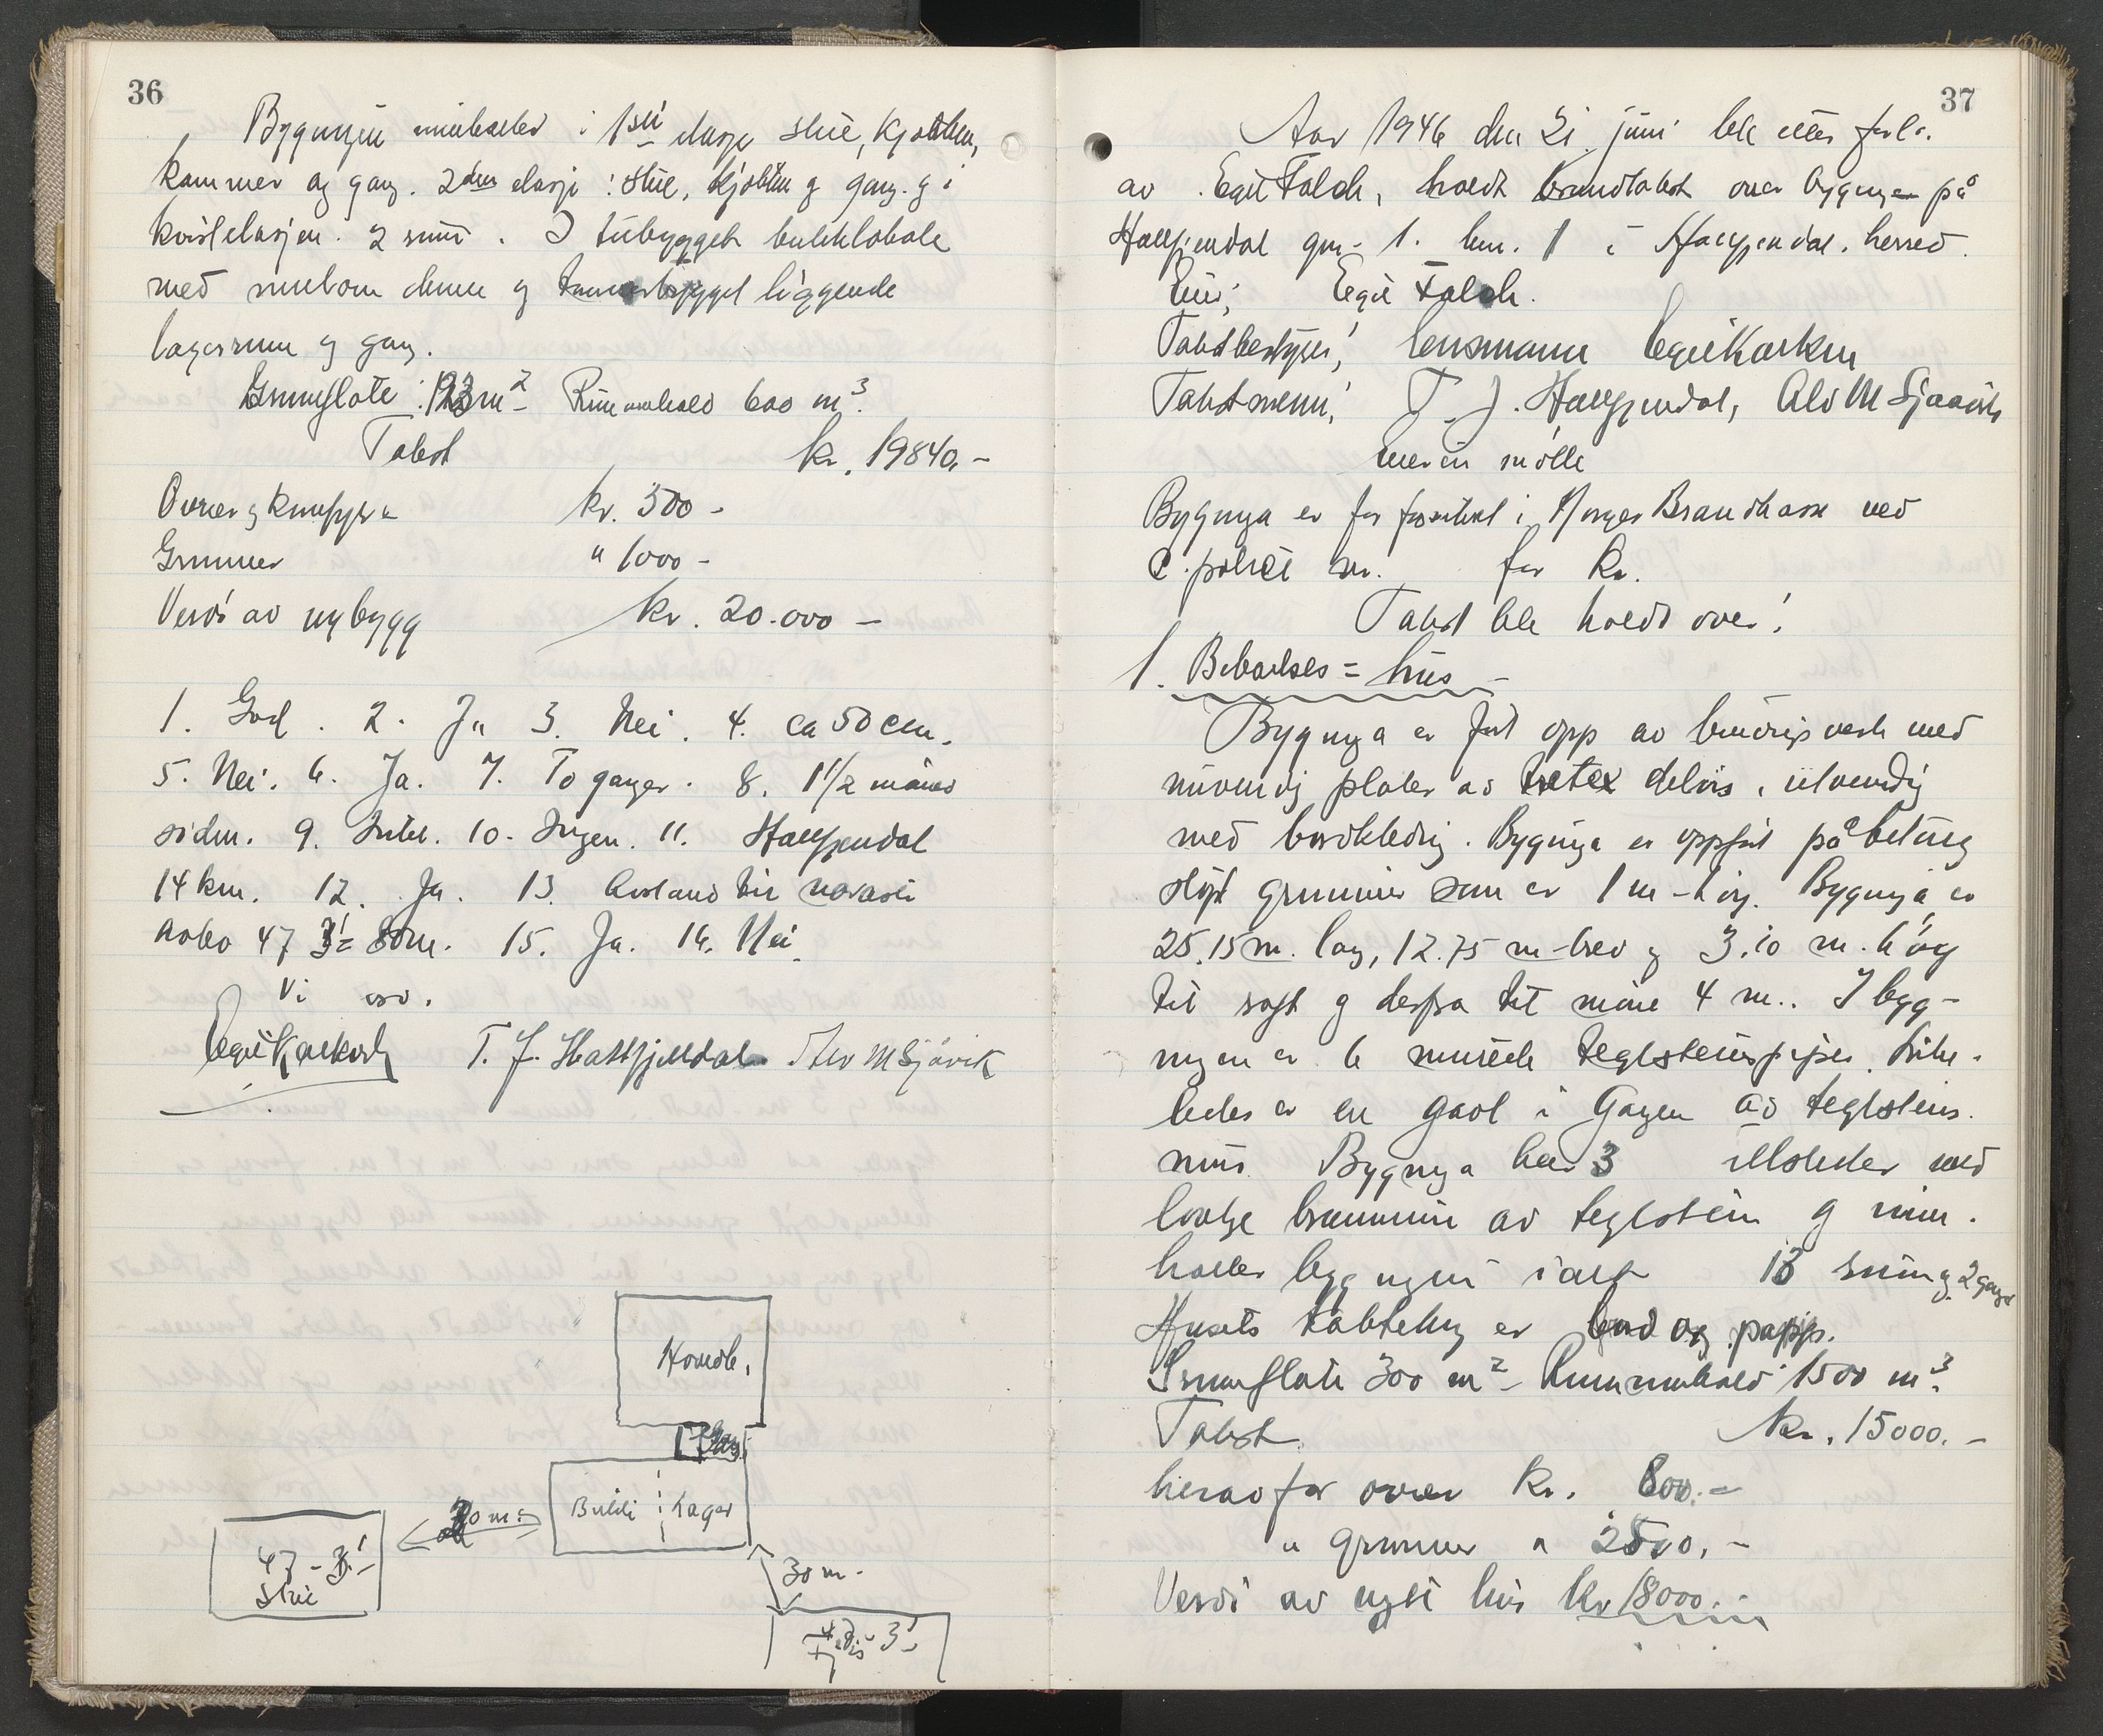 36
Bygningen inneholder i 1ste etasje stue, kjøkken,
kammer og gang. 2den etasje: stue, kjøkken og gang. og i
kvistetasjen. 2 rum. I tilbygget butiklokale
med mellom denne og liggende
lagerrum og gang.
Grunnflate: 123 m2 - Rominnhold 600 m3.
Takst kr. 19840.-
Ovner og komfyr kr. 500 -
Grunner " 1000 -
Verdi av nybygg kr. 20.000 -
1. God. 2. Ja 3. Nei. 4. ca 50 cm.
5. Nei. 6. Ja. 7. To ganger. 8. 1 1/2 måned
siden. 9. Intet. 10. Ingen. 11. Hattfjeldal
14 km. 12. Ja. 13. Avstand til
nabo 47 = 80 m. 15. Ja. 16. Nei.
Vi
T. J. Hattfjelldal Alv M Sjåvik
Hovedb.
Gang
Butikk Lager
20 m.
47 - 3!
Stue
30 m.
37
Aar 1946 den 21. juni ble etter forl.
av Egil Falch, holdt brandtakst over bygninger på
Hattfjendal gnr. 1. bnr. 1 i Hattfjendal. herred.
Eier; Egil Falch.
Takstbestyrer; lensmann
Takstmenn; T. J. Hattfjendal, Alv M Sjaavik
mølle
Bygninga er før forsikret i Norges Brandkasse ved
polise nr. for kr.
Takst ble holdt over:
1. Bebœlses = hus -
Bygninga er ført opp av bindingsverk med
innvendig plater av tretex delvis, utvendig
med bordkledning. Bygninga er oppført på betong
støpt grunnmur som er 1 m - høg. Bygninga er
25.15 m. lang, 12.75 m - bred og 3.10 m. høg
til raft og derfra til møne 4 m.. I bygg-
ningen er 6 murte teglsteinspiper. Like-
ledes er en gavl i Gangen av teglsteins
mur. Bygninga har 3 ildsteder med
lovlige brannmur av teglstein og inne-
holder bygningen i alt 13 rum og 2 ganger
Husets taktekking er bord og papp.
Grunnflate 300 m2 - Rumminnhold 1500 m3.
Takst kr. 15000.-
herav for ovner kr. 800.-
" grunner " 2500.-
Verdi av nytt hus kr 18000.-